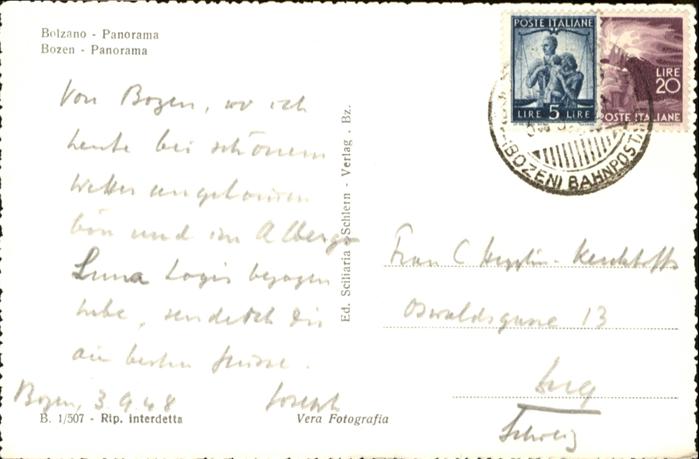 Bolzano - Panorama
Bozen - Panorama
Von Bozen, wo ich
heute bei schönem
Wetter angekommen
bin und im Albergo
Luna Logis bezogen
habe, sende ich dir
die besten Grüsse.
Bozen, 3 9. 48 Joseph
B. 1/507 - Rip. interdetta
Vera Fotografia
Ed. Sciliaria - Schlern - Verlag . Bz.
POSTE ITALIANE
LIRE 5 LIRE
LIRE
20
POSTE ITALIANE
(BOZEN) BAHNPOST
Frau C
Oswaldsgasse 13
Zug
Schweiz